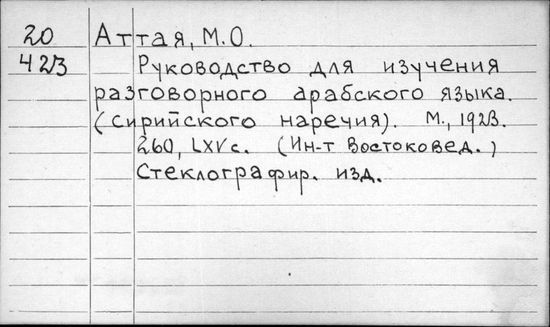 20 Аттая, М.О.
423 Руководство для изучения
разговорного арабского языка.
(сирийского наречия). М., 1923.
260, LXV с. (Ин-т Востоковед.)
Стеклографир. изд.